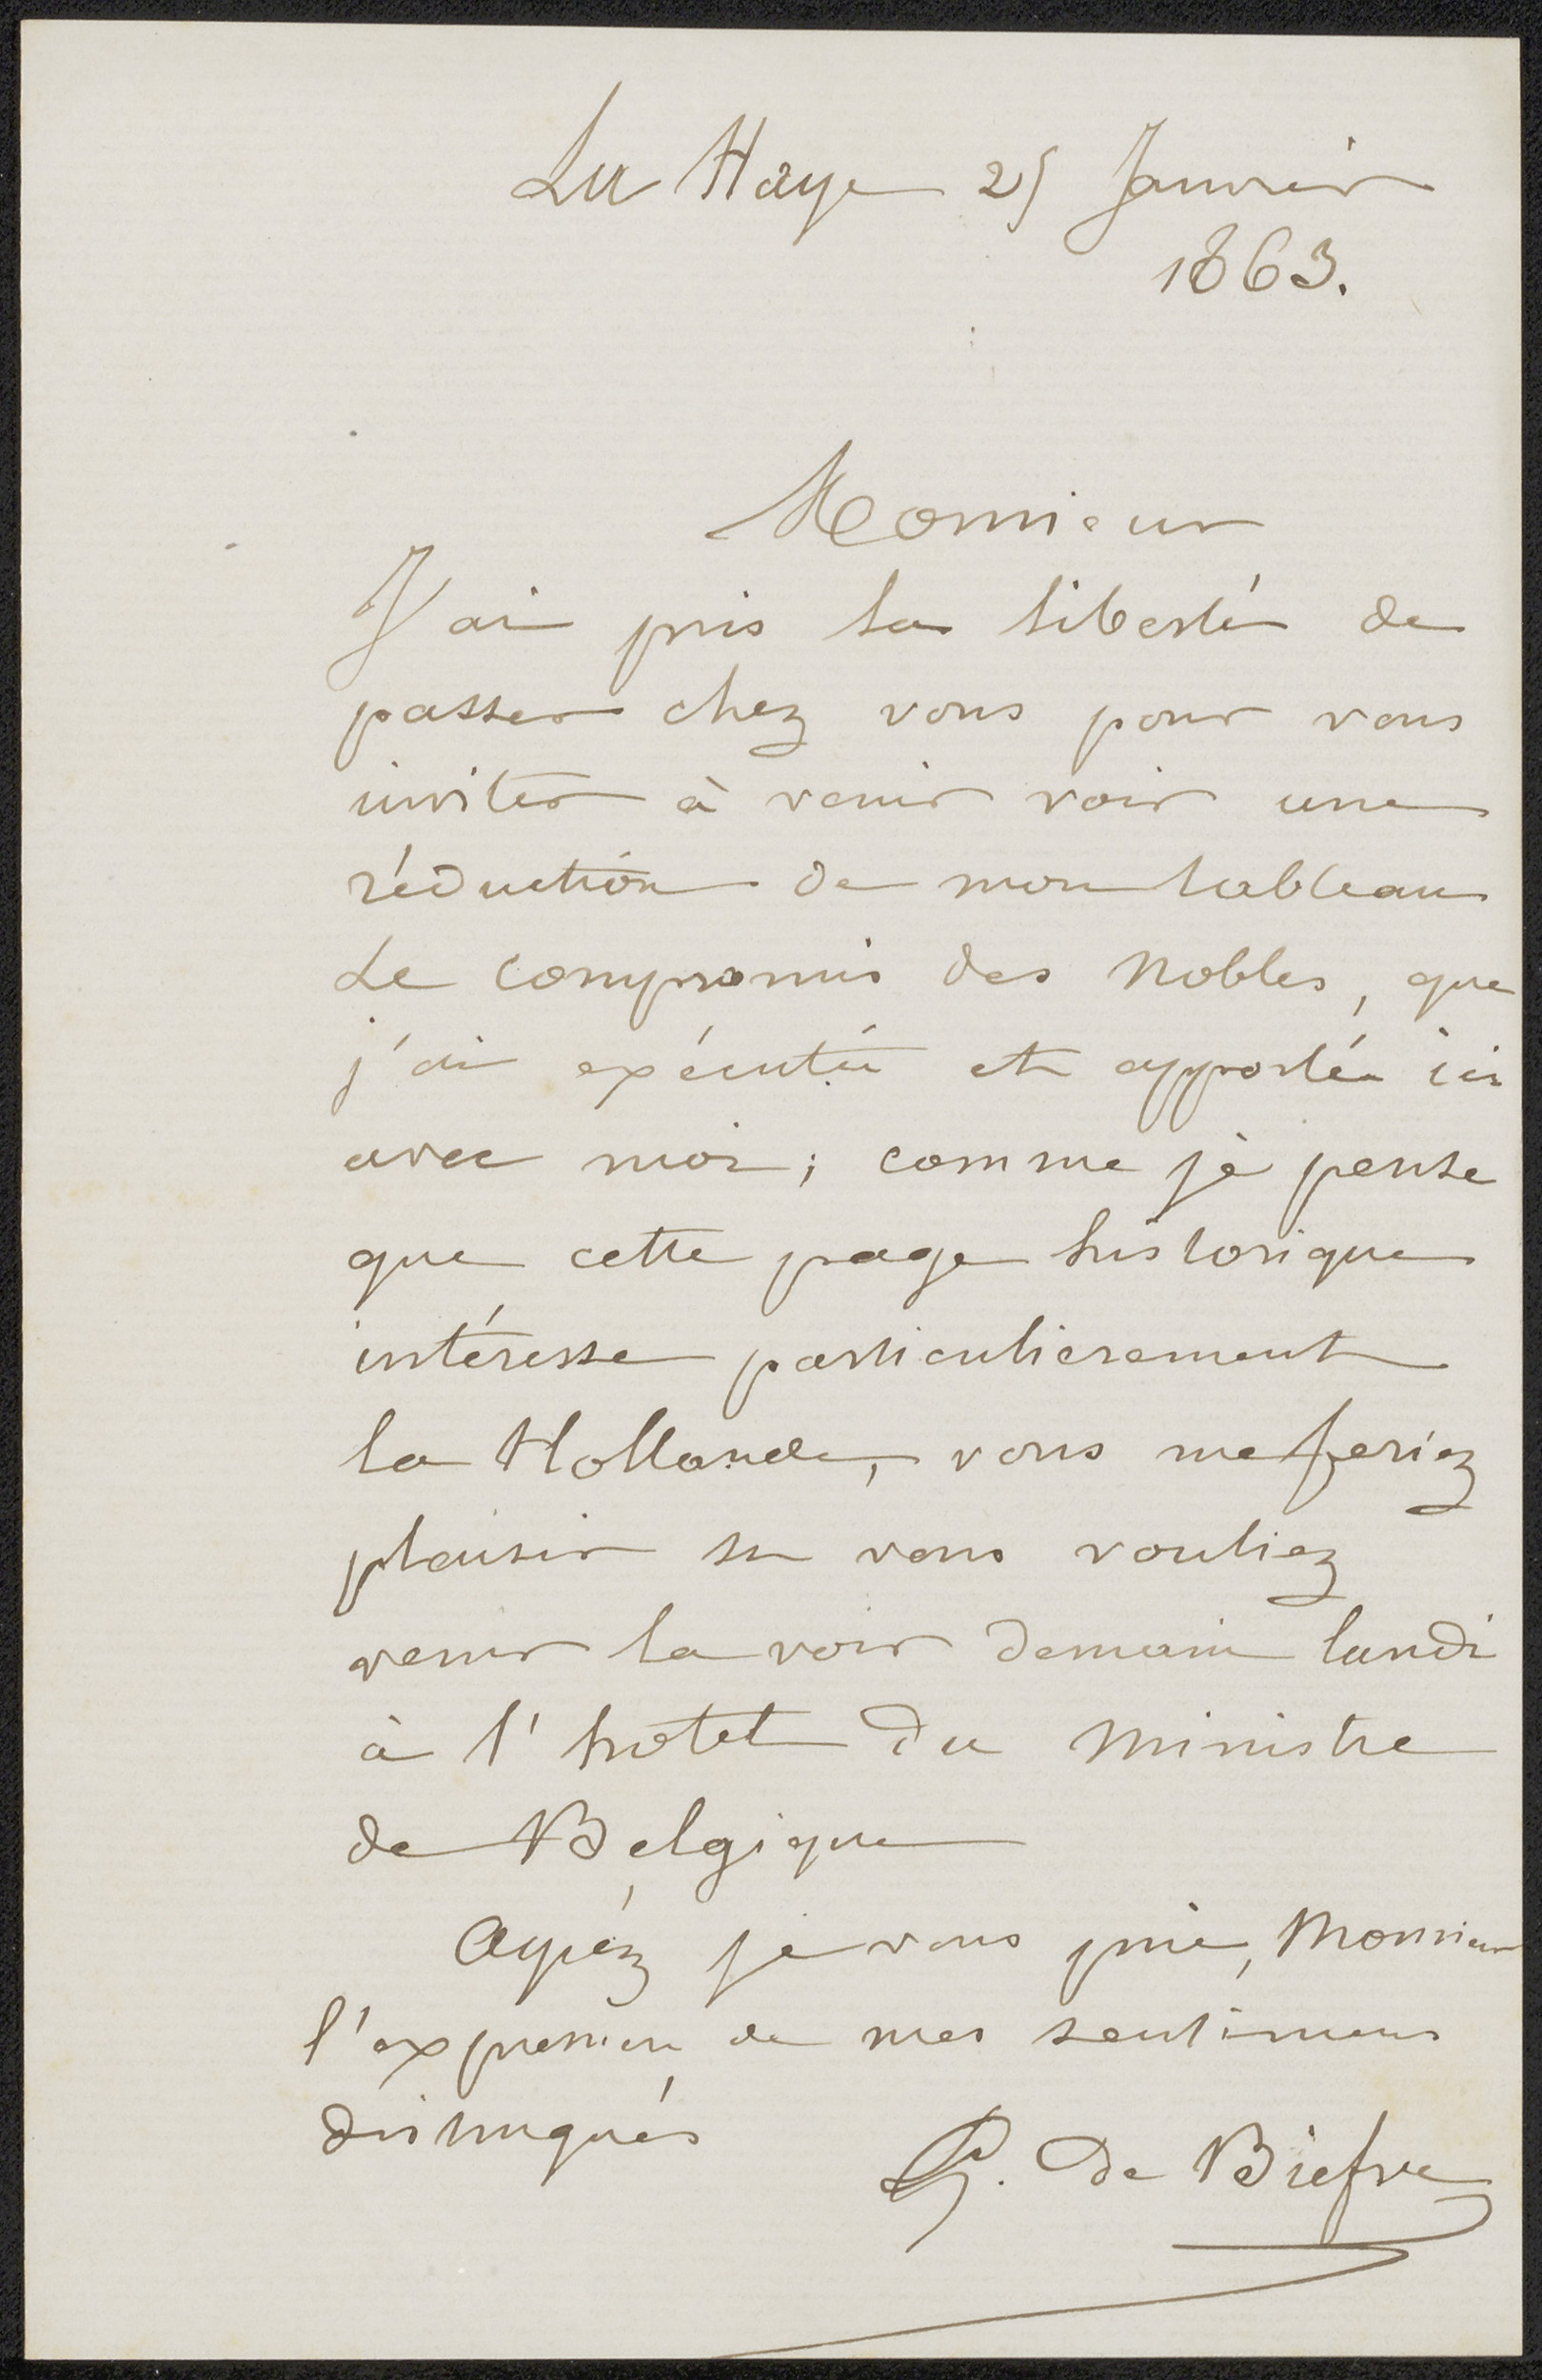 La Haye 25 Janvier
1863.
Monsieur
J'ai pris la liberté de
passer chez vous pour vous
inviter à venir voir une
réduction de mon tableau
Le compromis des Nobles, que
j'ai exécutée et apportée ici
avec moi; comme je pense
que cette page historique
intéresse particulierement
la Hollande, vous me feriez
plaisir si vous vouliez
venir la voir demain lundi
à l'hotel du Ministre
de Belgique
Agréez je vous prie, Monsieur
l'expression de mes sentimens
distingués
de Biefve